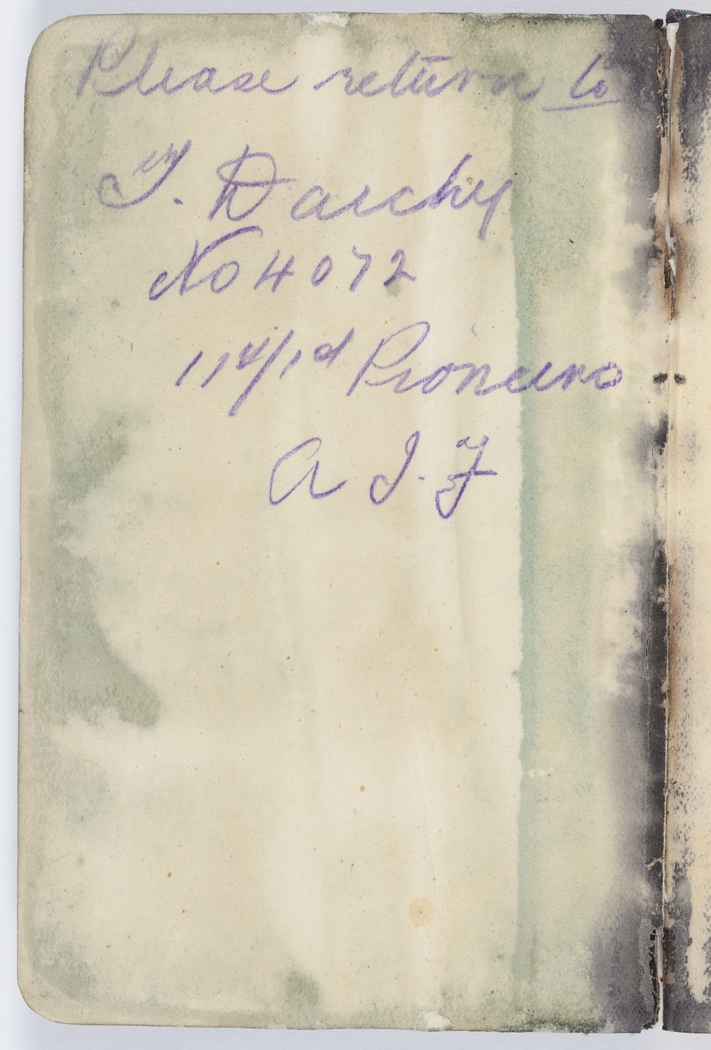 Please return to
T. Darchy
No 4072
11th/1st Pioneers
A I. F